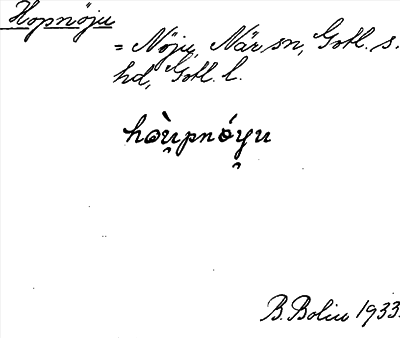 Hopnöju
= Nöju, När sn, Gotl. s.
hd, Gotl. l.
hòu̯pnóyu
B. Bolin 1933.